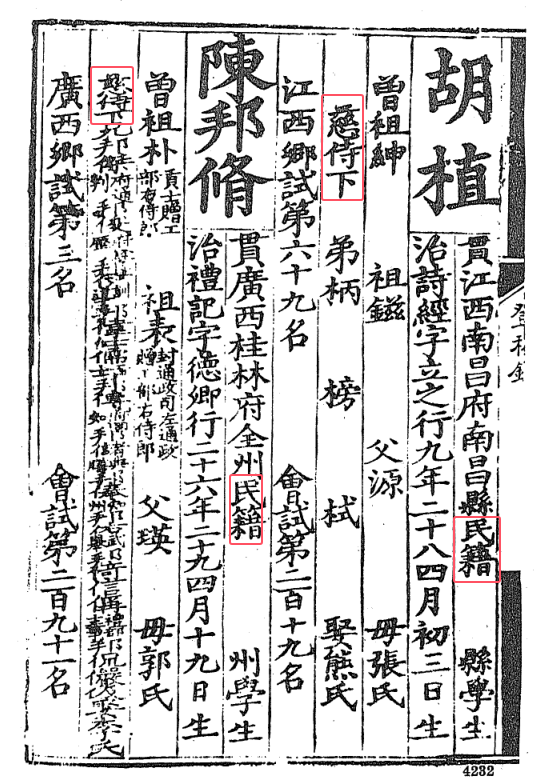 登科錄
胡植
貫江西南昌府南昌縣民籍 縣學生
治詩經字立之行九年二十八四月初三日生
曾祖紳 祖鎡 父源 母張氏
慈侍下 弟柄 榜 栻 娶熊氏
江西鄉試第六十九名 會試第二百十九名
陳邦脩
貫廣西桂林府全州民籍 州學生
治禮記字德卿行二十六年二十九四月十九日生
曾祖朴貢士贈工部右侍郎 祖表封通政司左通政贈工部右侍郎 父瑛 母郭氏
慈侍下
娶李氏
廣西鄉試第三名 會試第二百九十一名
4232